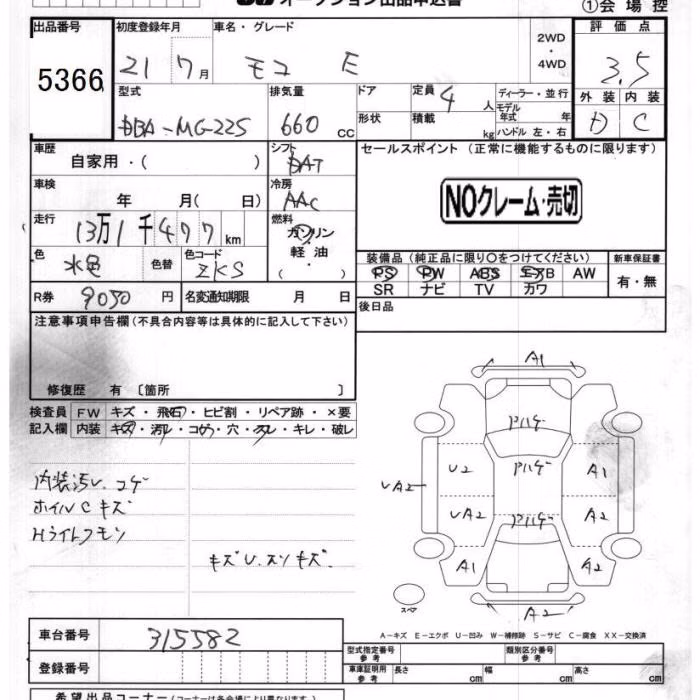 オークション出品申込書
①会場控
出品番号 初度登録年月 車名・グレード 評価点
5366 21 7月 モコ E 2WD・4WD 3.5
型式 排気量 ドア 定員 4人 ディーラー・並行 外装 内装
DBA-MG22S 660 CC 形状 積載 kg モデル年式 年 ハンドル 左・右 D C
車歴 自家用・( ) シフト DAT セールスポイント (正常に機能するものに限ります)
車検 年 月( 日) 冷房 AAC
NOクレーム・売切
走行 13万1千477km 燃料 ガソリン・軽油・( )
色 水色 色替 色コード ZKS
装備品 (純正品に限り〇をつけてください) 新車保証書
PS PW ABS エアB AW 有・無
SR ナビ TV カワ
R券 9050円 名変通知期限 月 日 後日品
注意事項申告欄(不具合内容等は具体的に記入して下さい)
修復歴 有〔箇所 〕
検査員 FW キズ・飛石・ヒビ割・リペア跡・×要
記入欄 内装 キズ・汚レ・コゲ・穴・スレ・キレ・破レ
内装汚レ コゲ
ホイルCキズ
Hライトクモリ
キズU.スリキズ.
A1
U2 A1
UA2
UA2 A2
A1 A2
スペア A2
A-キズ E-エクボ U-凹み W-補修跡 S-サビ C-腐食 XX-交換済
車台番号 315582
登録番号
型式指定番号 参考 類別区分番号 参考
車庫証明用 参考 長さ cm 幅 cm 高さ cm
希望出品コーナー(コーナーは各会場により異なります)